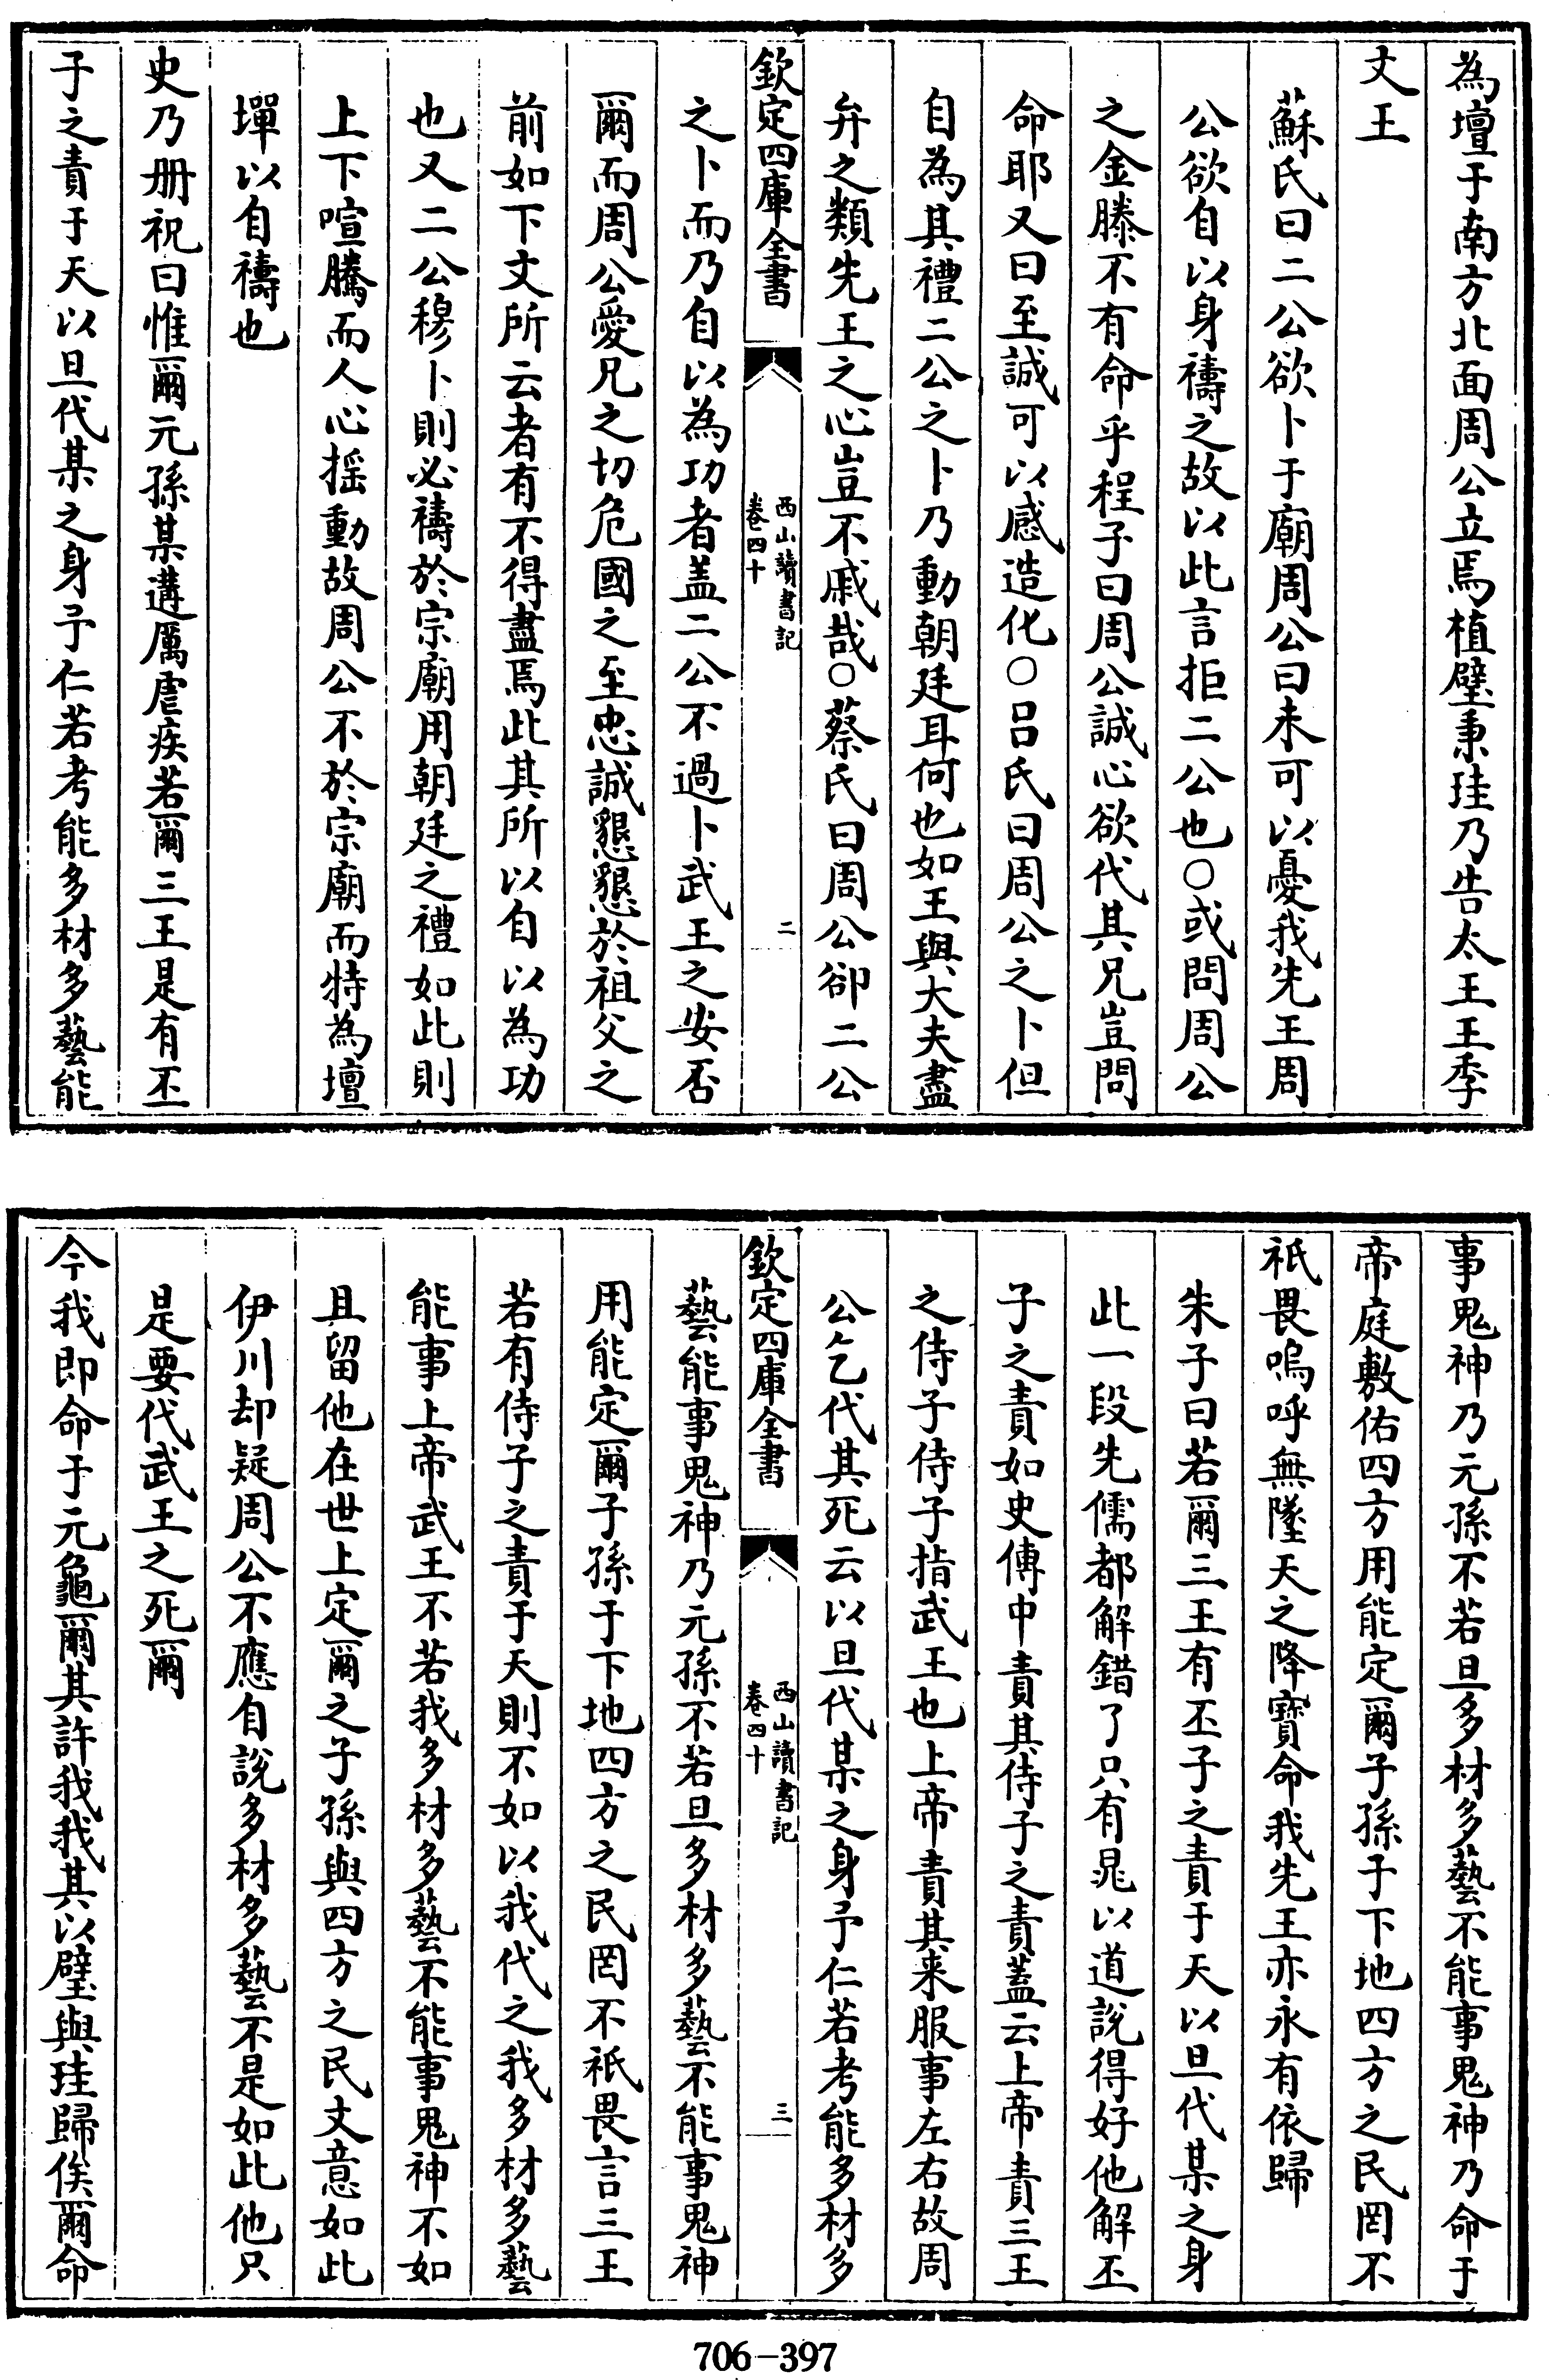 為壇于南方北面周公立焉植璧秉珪乃告太王王季
文王
蘇氏曰二公欲卜于廟周公曰未可以憂我先王周
公欲自以身禱之故以此言拒二公也○或問周公
之金縢不有命乎程子曰周公誠心欲代其兄豈問
命耶又曰至誠可以感造化○呂氏曰周公之卜但
自為其禮二公之卜乃動朝廷耳何也如王與大夫盡
弁之類先王之心豈不戚哉○蔡氏曰周公卻二公
欽定四庫全書
西山讀書記
卷四十
二
之卜而乃自以為功者盖二公不過卜武王之安否
爾而周公愛兄之切危國之至忠誠懇懇於祖父之
前如下文所云者有不得盡焉此其所以自以為功
也又二公穆卜則必禱於宗廟用朝廷之禮如此則
上下喧騰而人心揺動故周公不於宗廟而特為壇
墠以自禱也
史乃册祝曰惟爾元孫某遘厲虐疾若爾三王是有丕
子之責于天以旦代某之身予仁若考能多材多藝能
事鬼神乃元孫不若旦多材多藝不能事鬼神乃命于
帝庭敷佑四方用能定爾子孫于下地四方之民罔不
祇畏嗚呼無墜天之降寶命我先王亦永有依歸
朱子曰若爾三王有丕子之責于天以旦代某之身
此一段先儒都解錯了只有晁以道說得好他解丕
子之責如史傳中責其侍子之責蓋云上帝責三王
之侍子侍子指武王也上帝責其来服事左右故周
公乞代其死云以旦代某之身予仁若考能多材多
欽定四庫全書
西山讀書記
卷四十
三
藝能事鬼神乃元孫不若旦多材多藝不能事鬼神
用能定爾子孫于下地四方之民罔不祇畏言三王
若有侍子之責于天則不如以我代之我多材多藝
能事上帝武王不若我多材多藝不能事鬼神不如
且留他在世上定爾之子孫與四方之民文意如此
伊川却疑周公不應自說多材多藝不是如此他只
是要代武王之死爾
今我即命于元龜爾其許我我其以璧與珪歸俟爾命
706-397